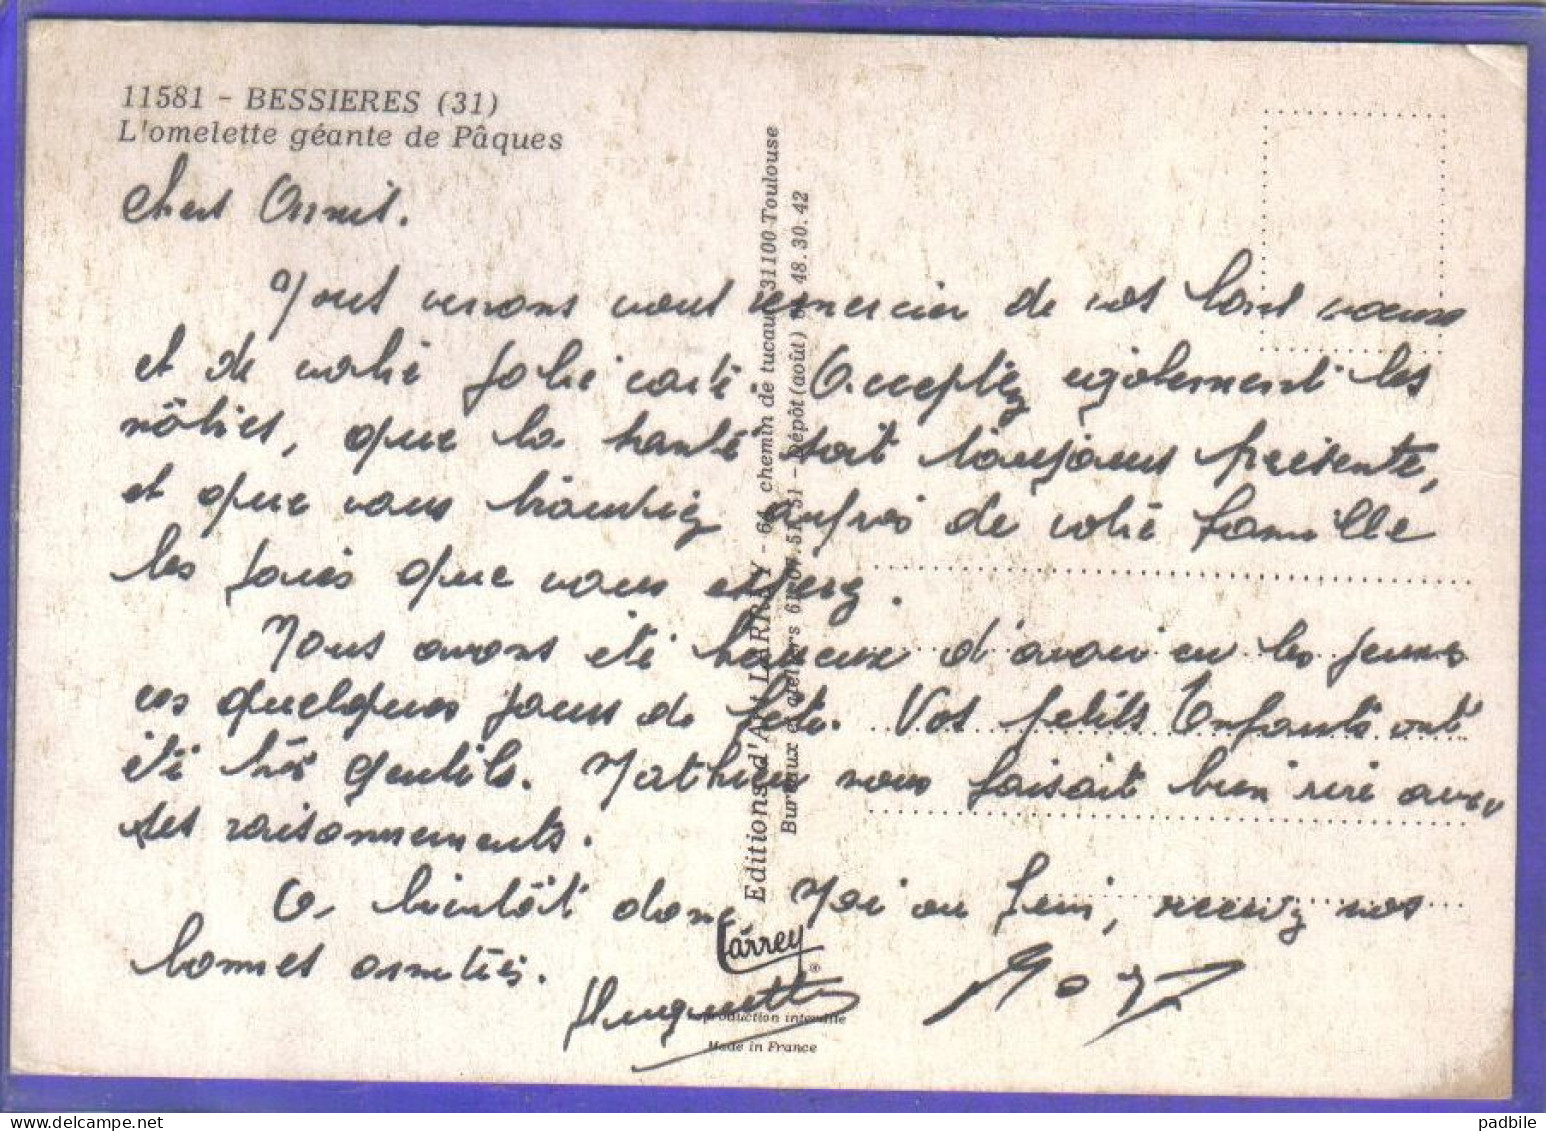 11581 - BESSIERES (31)
L'omelette géante de Pâques
Chers Amis.
Nous venons vous remercier de vos bons voeux
et de votre jolie carte. Acceptez également les
nôtres, que la santé soit toujours présente,
et que vous trouviez auprès de votre famille
les joies que vous espérez.
Nous avons été heureux d'avoir eu les jeunes
ces quelques jours de fête. Vos petits Enfants ont
été très gentils. Mathieu nous faisait bien rire avec
ses raisonnements.
A bientôt donc, Mai ou Juin, recevez nos
bonnes amitiés.
Huguette
Editions d'Art LARREY - 64, chemin de tucaut 31100 Toulouse
Bureaux et ateliers 61.07.51.31 - Dépôt (août) 48.30.42
Larrey
®
Reproduction interdite
Made in France
padbile